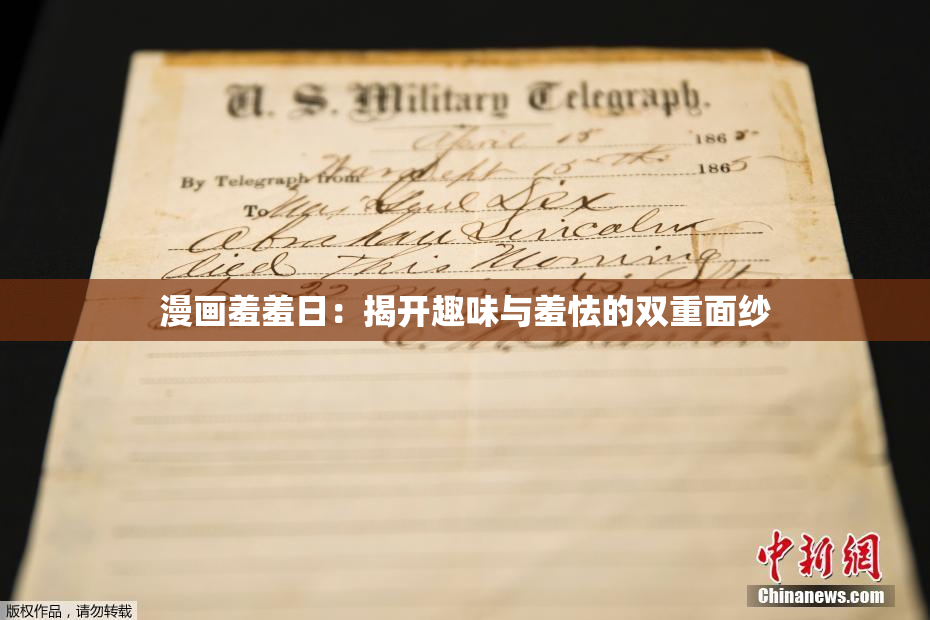 U. S. Military Telegraph.
April 15 1865
By Telegraph from War Dept 15th 1865
To Maj Genl Dix
Abraham Lincoln
died This Morning
at 22 minutes after
漫画羞羞日：揭开趣味与羞怯的双重面纱
E. M. Stanton
中新网
Chinanews.com
版权作品，请勿转载